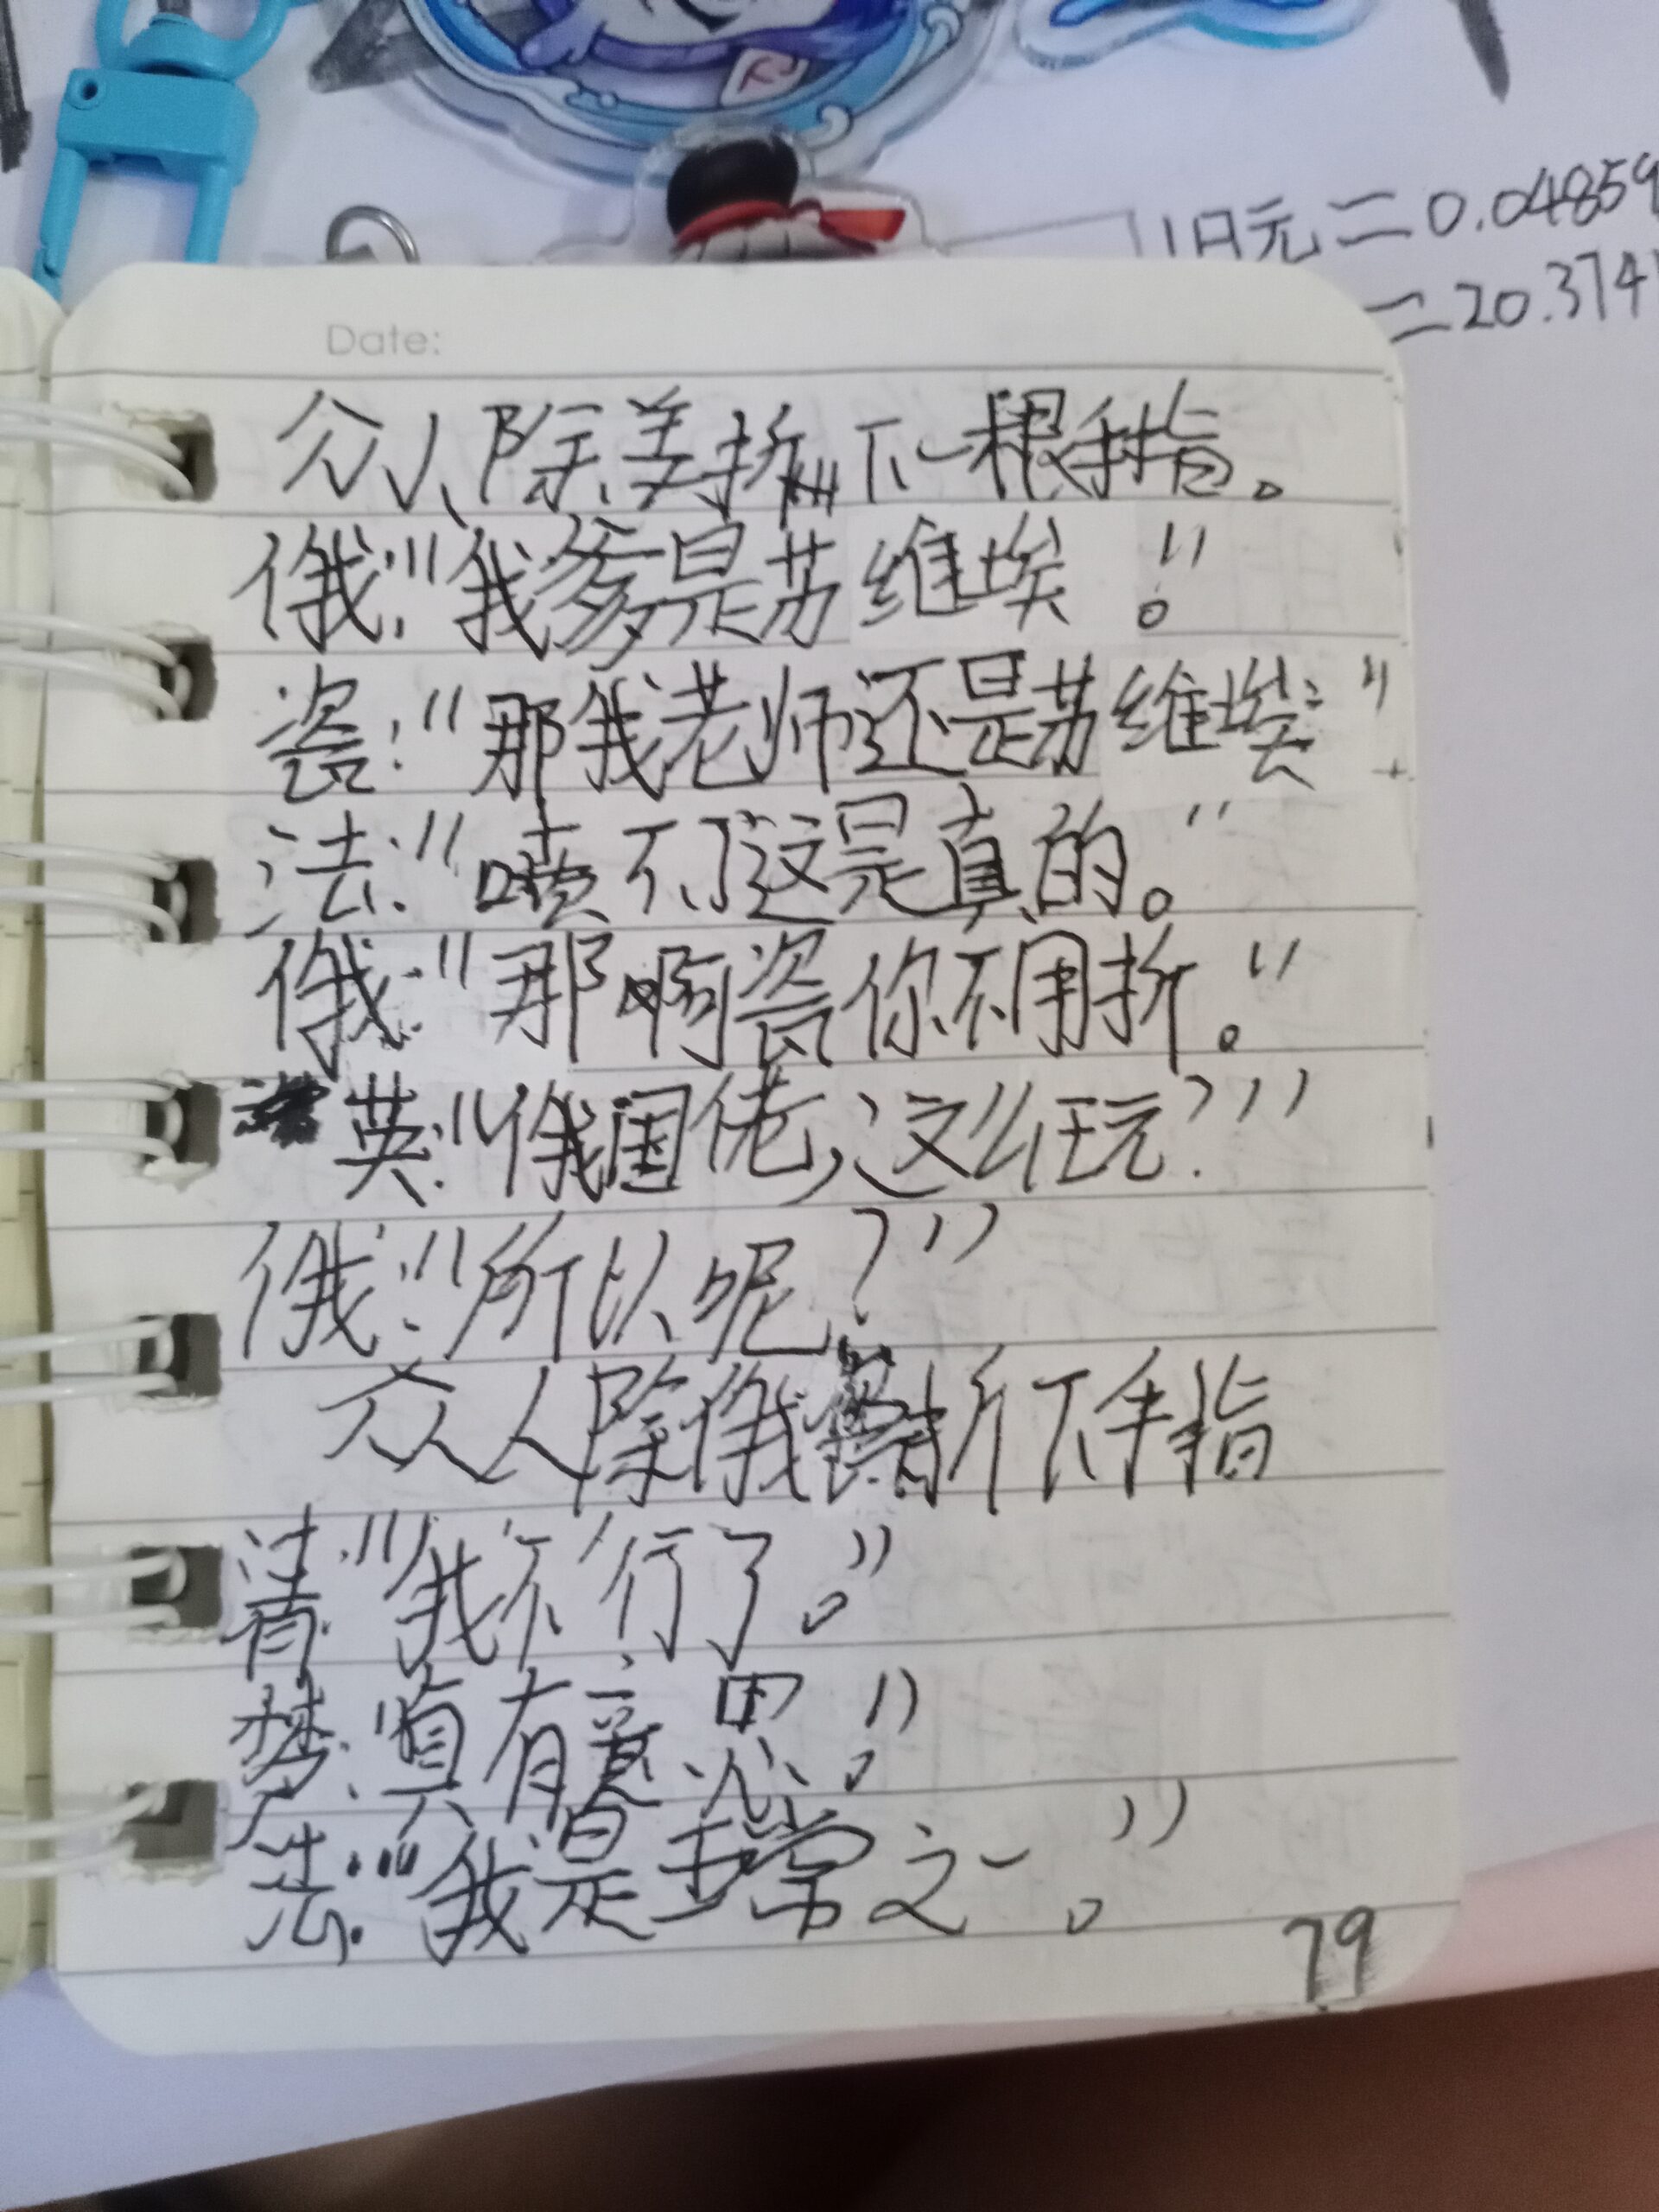 1日元二0.04859
二20.374
Date:
众人除美折下一根手指。
俄:"我爹是苏维埃!"
瓷:"那我老师还是苏维埃"
法:"啧不了这是真的。"
俄:"那啊瓷你不用折。"
英:"俄国佬,这么玩?"
俄:"所以呢?"
众人除俄瓷折下手指
清"我不行了。"
梦:"真有意思。"
法:"我是王常之一。"
79